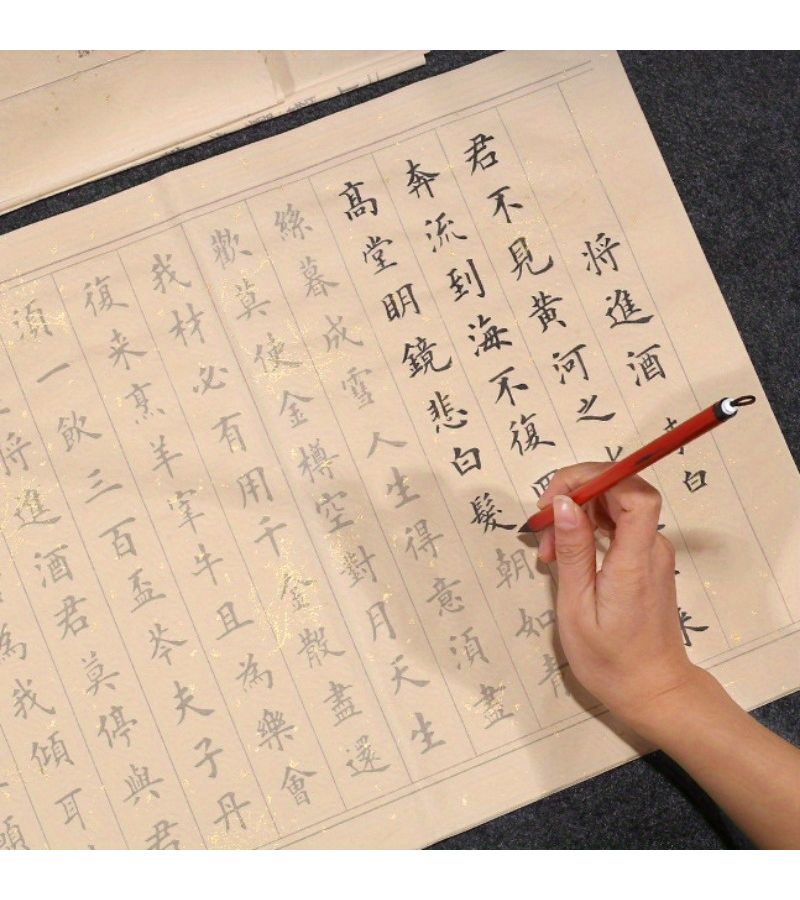 将進酒 李白
君不見黄河之来
奔流到海不復
髙堂眀鏡悲白髮朝如青
絲暮成雪人生得意湏盡
歡莫使金樽空對月天生
我材必有用千金散盡還
復来烹羊宰牛且為樂會
湏一飲三百盃岑夫子丹
将進酒君莫停與君
為我傾耳